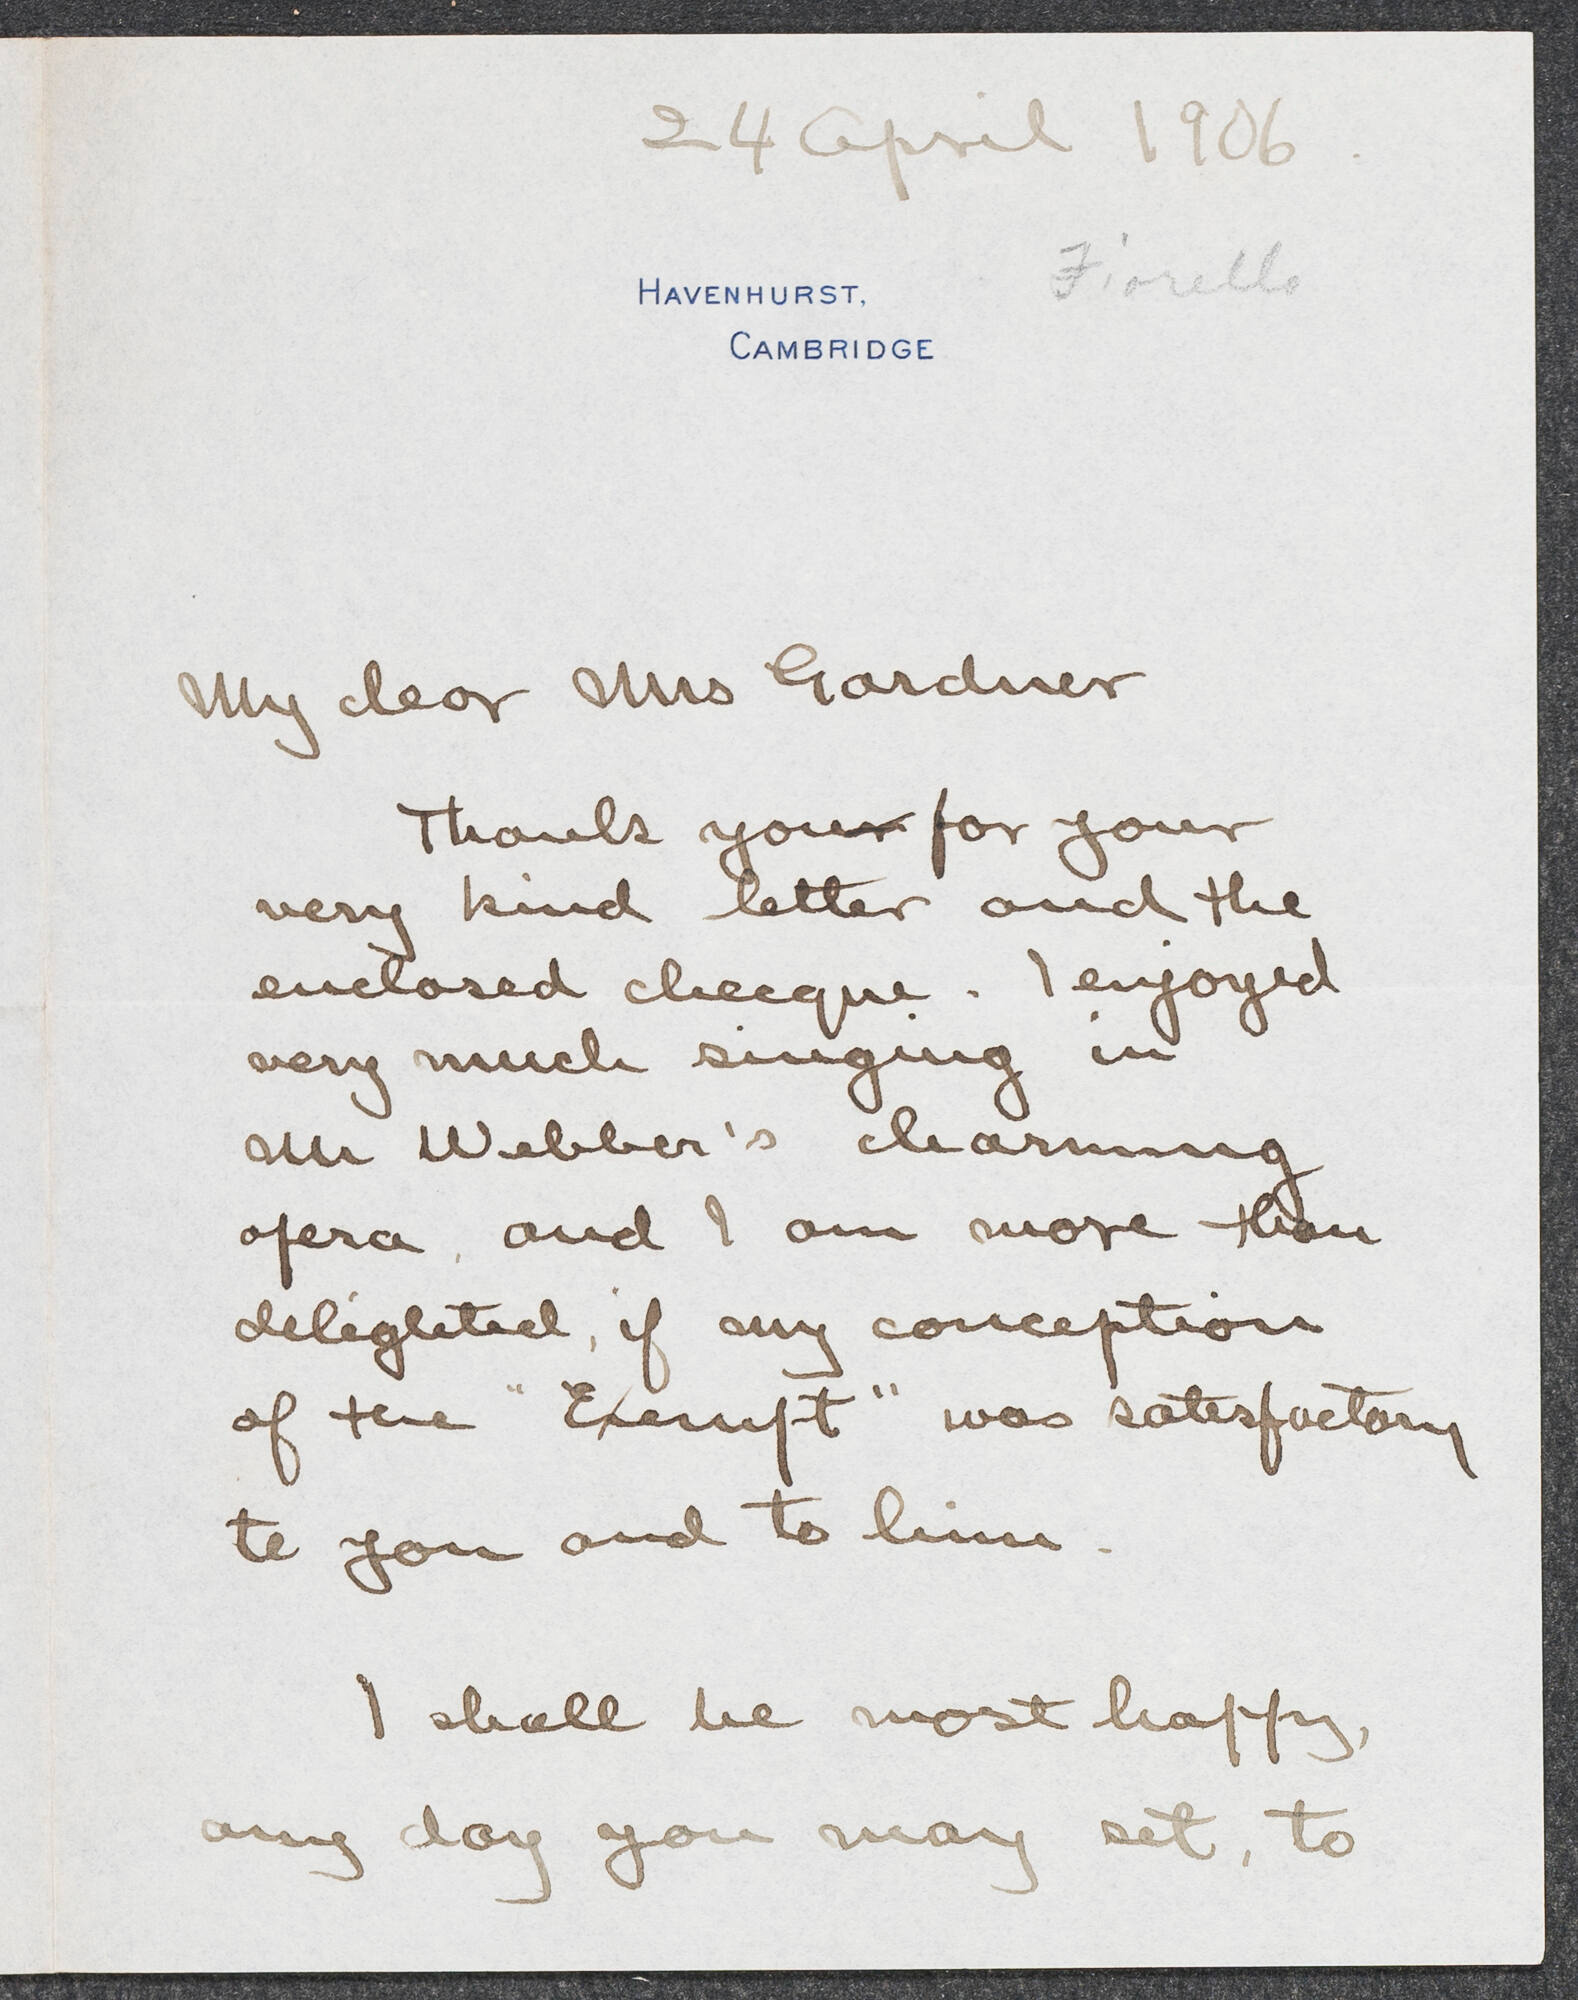 24 April 1906.
Fiorello
HAVENHURST,
CAMBRIDGE
My dear Mrs Gardner
Thank your for your
very kind letter and the
enclosed checque. I enjoyed
very much singing in
Mr Webber's charming
opera, and I am more than
delighted, if my conception
of the "Exempt" was satisfactory
to you and to him.
I shall be most happy,
any day you may set, to